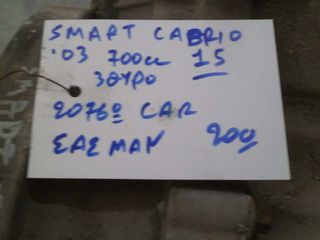 SMART CABRIO
'03 700cc 15
3ΘΥΡΟ
2076º CAR
ΣΑΣΜΑΝ 200